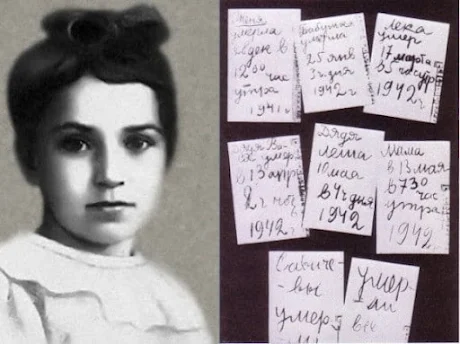 Женя
умерла
28 дек в
12 00 час
утра
1941 г
Бабушка
умерла
25 янв
3 ч дня
1942 г
Лека
умер
17 марта
в 5 час утр
1942 г
Дядя Ва-
ся умер в
13 апр
2 ч ноч
1942 г
Дядя
Леша
10 мая
в 4 ч дня
1942 г
Мама
в 13 мая
в 7 30
час
утра
1942
Савиче-
вы
умер-
ли
умер-
ли
все